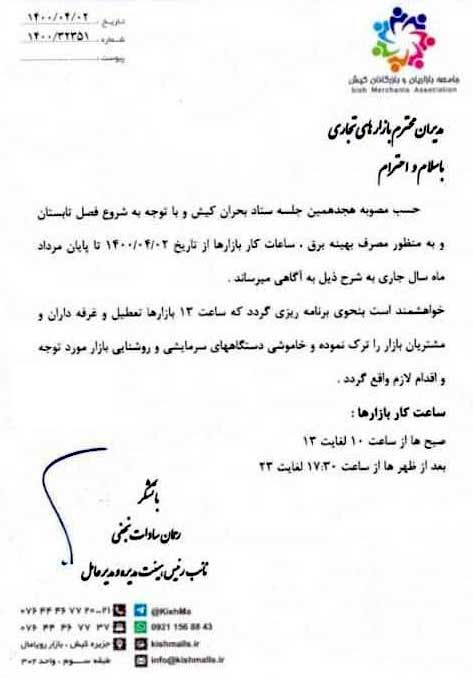 تاریخ: ۱۴۰۰/۰۴/۰۲
شماره: ۱۴۰۰/۳۲۳۵۱
پیوست:
جامعه بازاریان و بازرگانان کیش
Kish Merchants Association
مدیران محترم بازارهای تجاری
باسلام و احترام
حسب مصوبه هجدهمین جلسه ستاد بحران کیش و با توجه به شروع فصل تابستان
و به منظور مصرف بهینه برق ، ساعات کار بازارها از تاریخ ۱۴۰۰/۰۴/۰۲ تا پایان مرداد
ماه سال جاری به شرح ذیل به آگاهی میرساند .
خواهشمند است بنحوی برنامه ریزی گردد که ساعت ۱۳ بازارها تعطیل و غرفه داران و
مشتریان بازار را ترک نموده و خاموشی دستگاههای سرمایشی و روشنایی بازار مورد توجه
و اقدام لازم واقع گردد .
ساعت کار بازارها :
صبح ها از ساعت ۱۰ لغایت ۱۳
بعد از ظهر ها از ساعت ۱۷:۳۰ لغایت ۲۳
باتشکر
رحمان سادات نجفی
نائب رئیس هیئت مدیره و مدیرعامل
۰۷۶ ۴۴ ۴۶ ۷۷ ۲۰-۲۱ @KishMa
۰۷۶ ۴۴ ۴۶ ۷۷ ۳۷ 0921 156 88 43
جزیره کیش ، بازار رویامال kishmalls.ir
طبقه سوم ، واحد ۳۰۲ info@kishmalls.ir